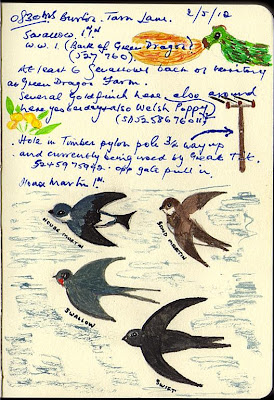 0830hrs Burtle. Tarn Lane. 2/5/12
Swallow 1M
W.W. 1 (Back of Green Dragon)
(527760)
At least 6 Swallows back on territory
at Green Dragon Farm.
Several Goldfinch here, also around
here yesterday. Also Welsh Poppy.
(SD5258676011)
. Hole in Timber pylon pole 3/4 way up
. and currently being used by Great Tit.
opp gate pull in
House Martin 1M
HOUSE MARTIN
SAND MARTIN
SWALLOW
SWIFT